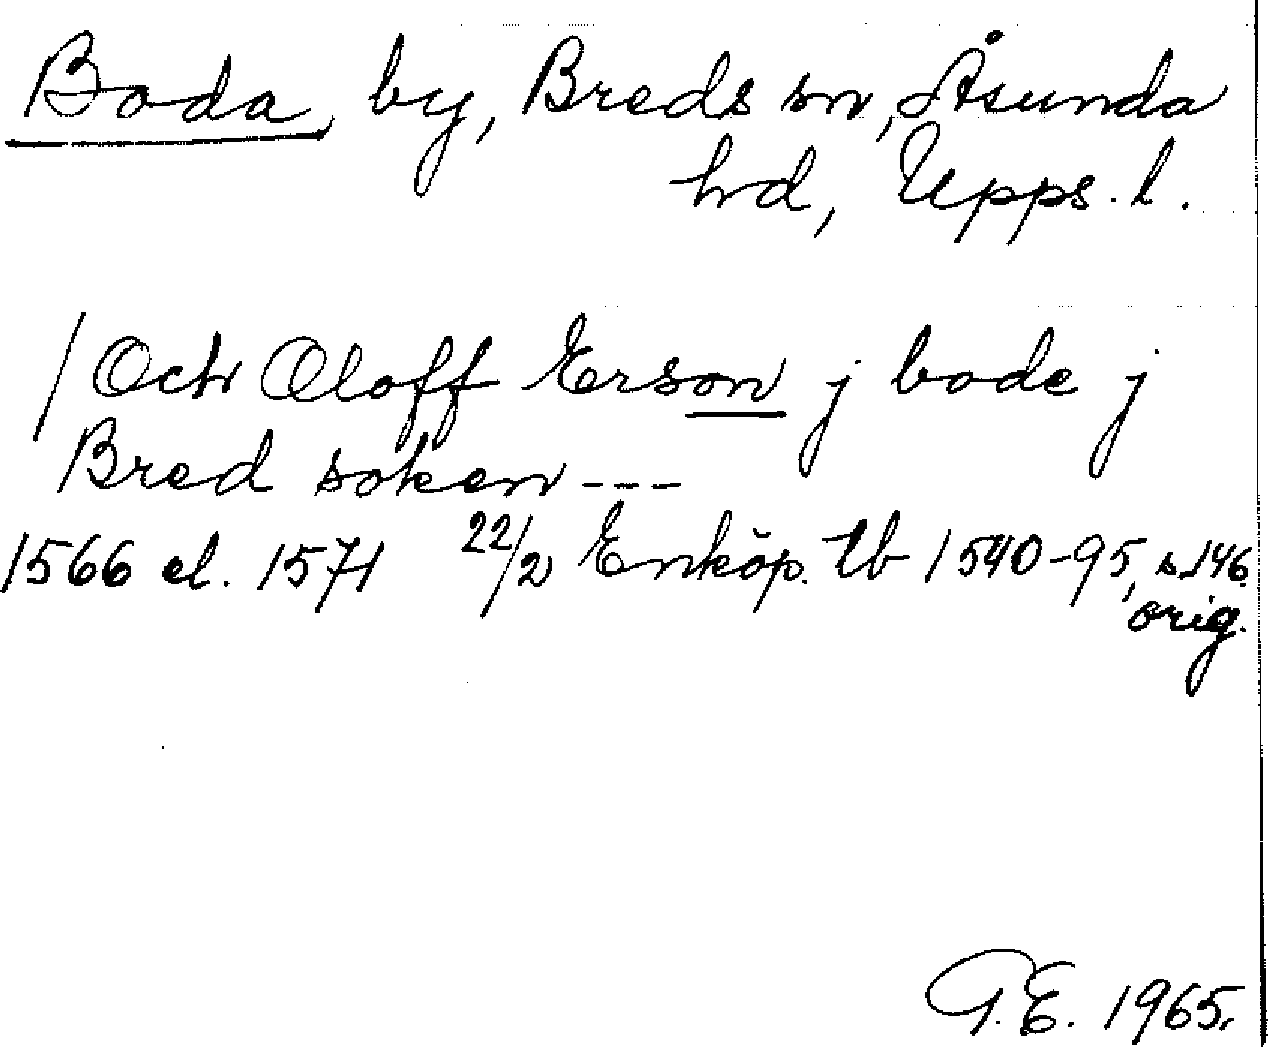 Boda, by, Breds sn, Åsunda
hd, Upps. l.
/ Och Oloff Erson j bode j
Bred soken ---
1566 el. 1571 22/2 Enköp. tb 1540-95, s. 146
orig.
G.E. 1965.